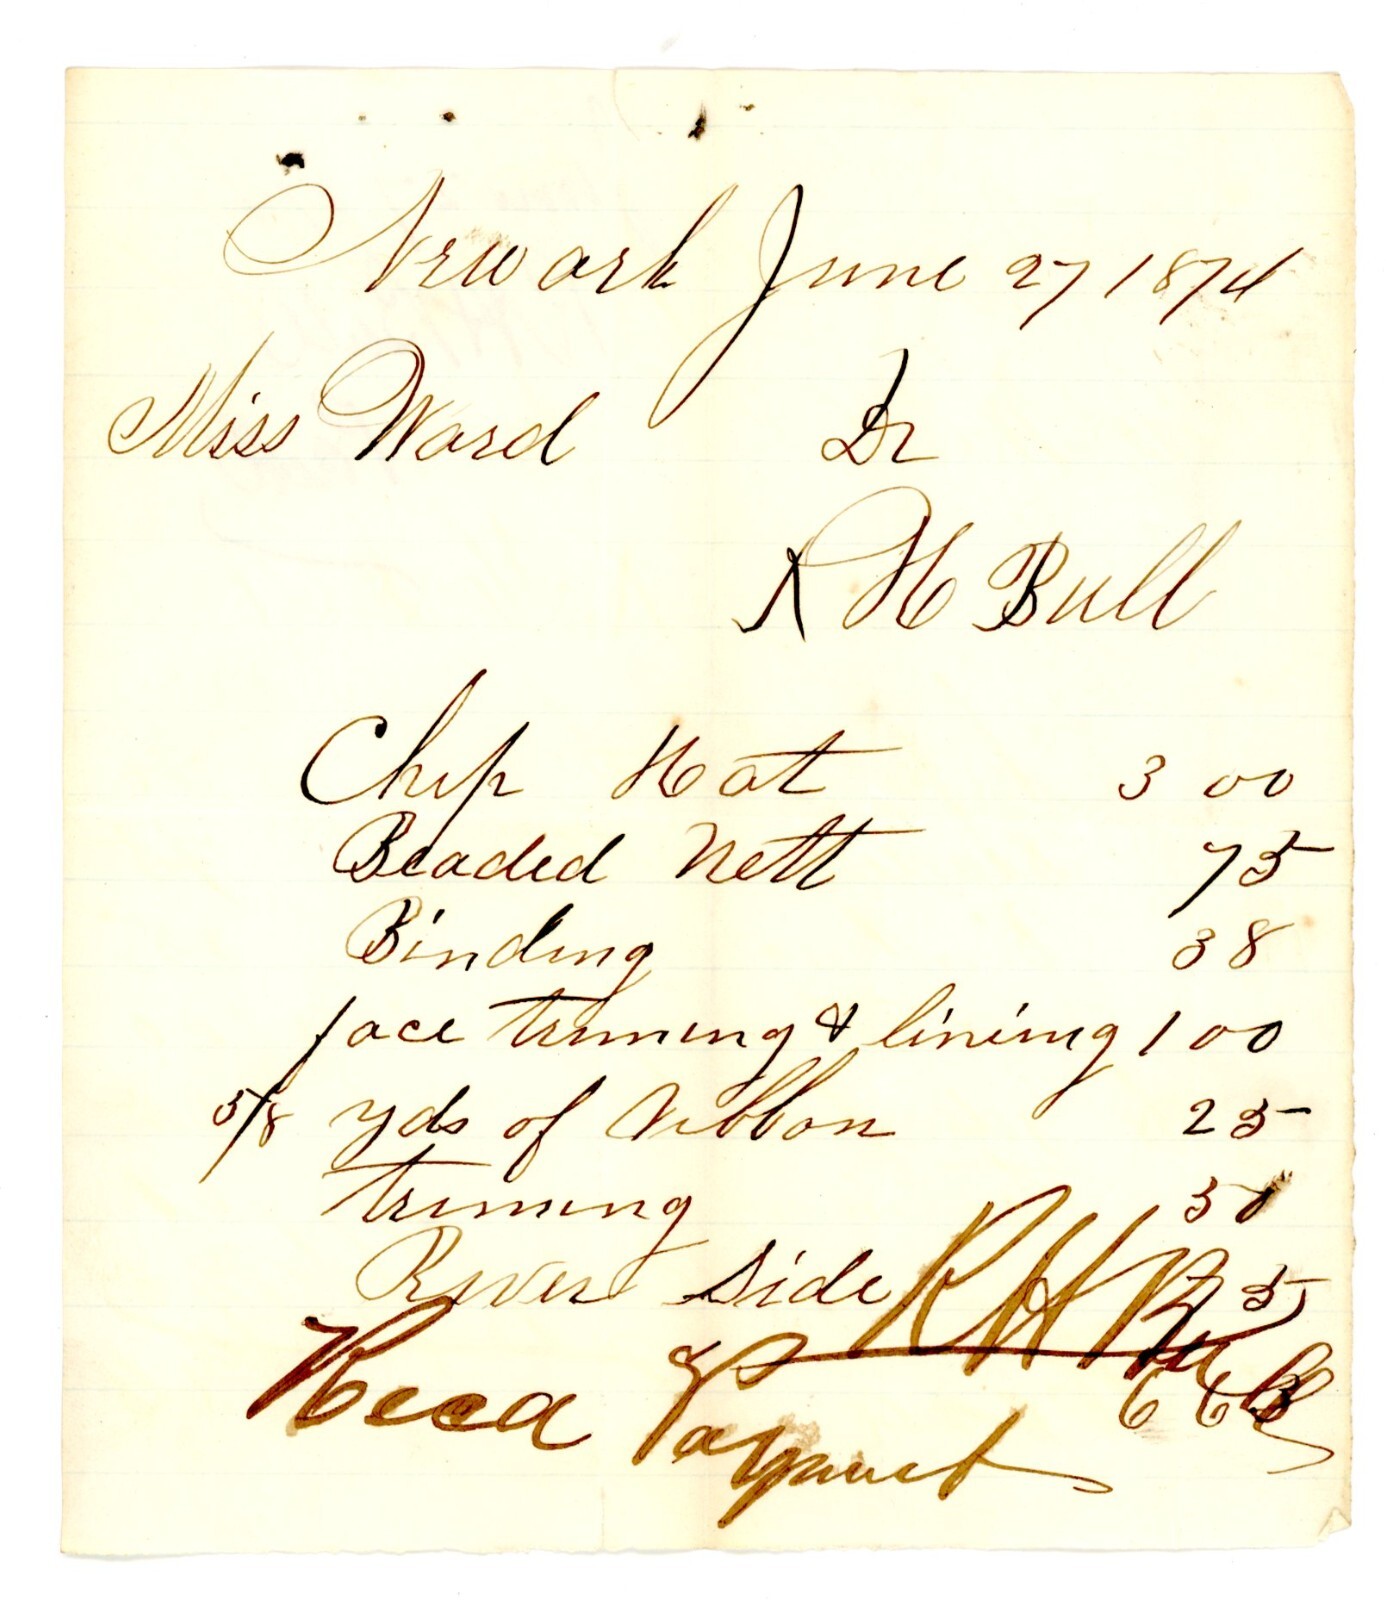 Newark June 27 1874
Miss Ward Dr
R H Bull
Chip Hat 3 00
Beaded Nett 75
Binding 38
face triming & lining 1 00
5/8 yds of Ribbon 25
triming 50
River side 75
6 63
Recd Payment
R H Bull